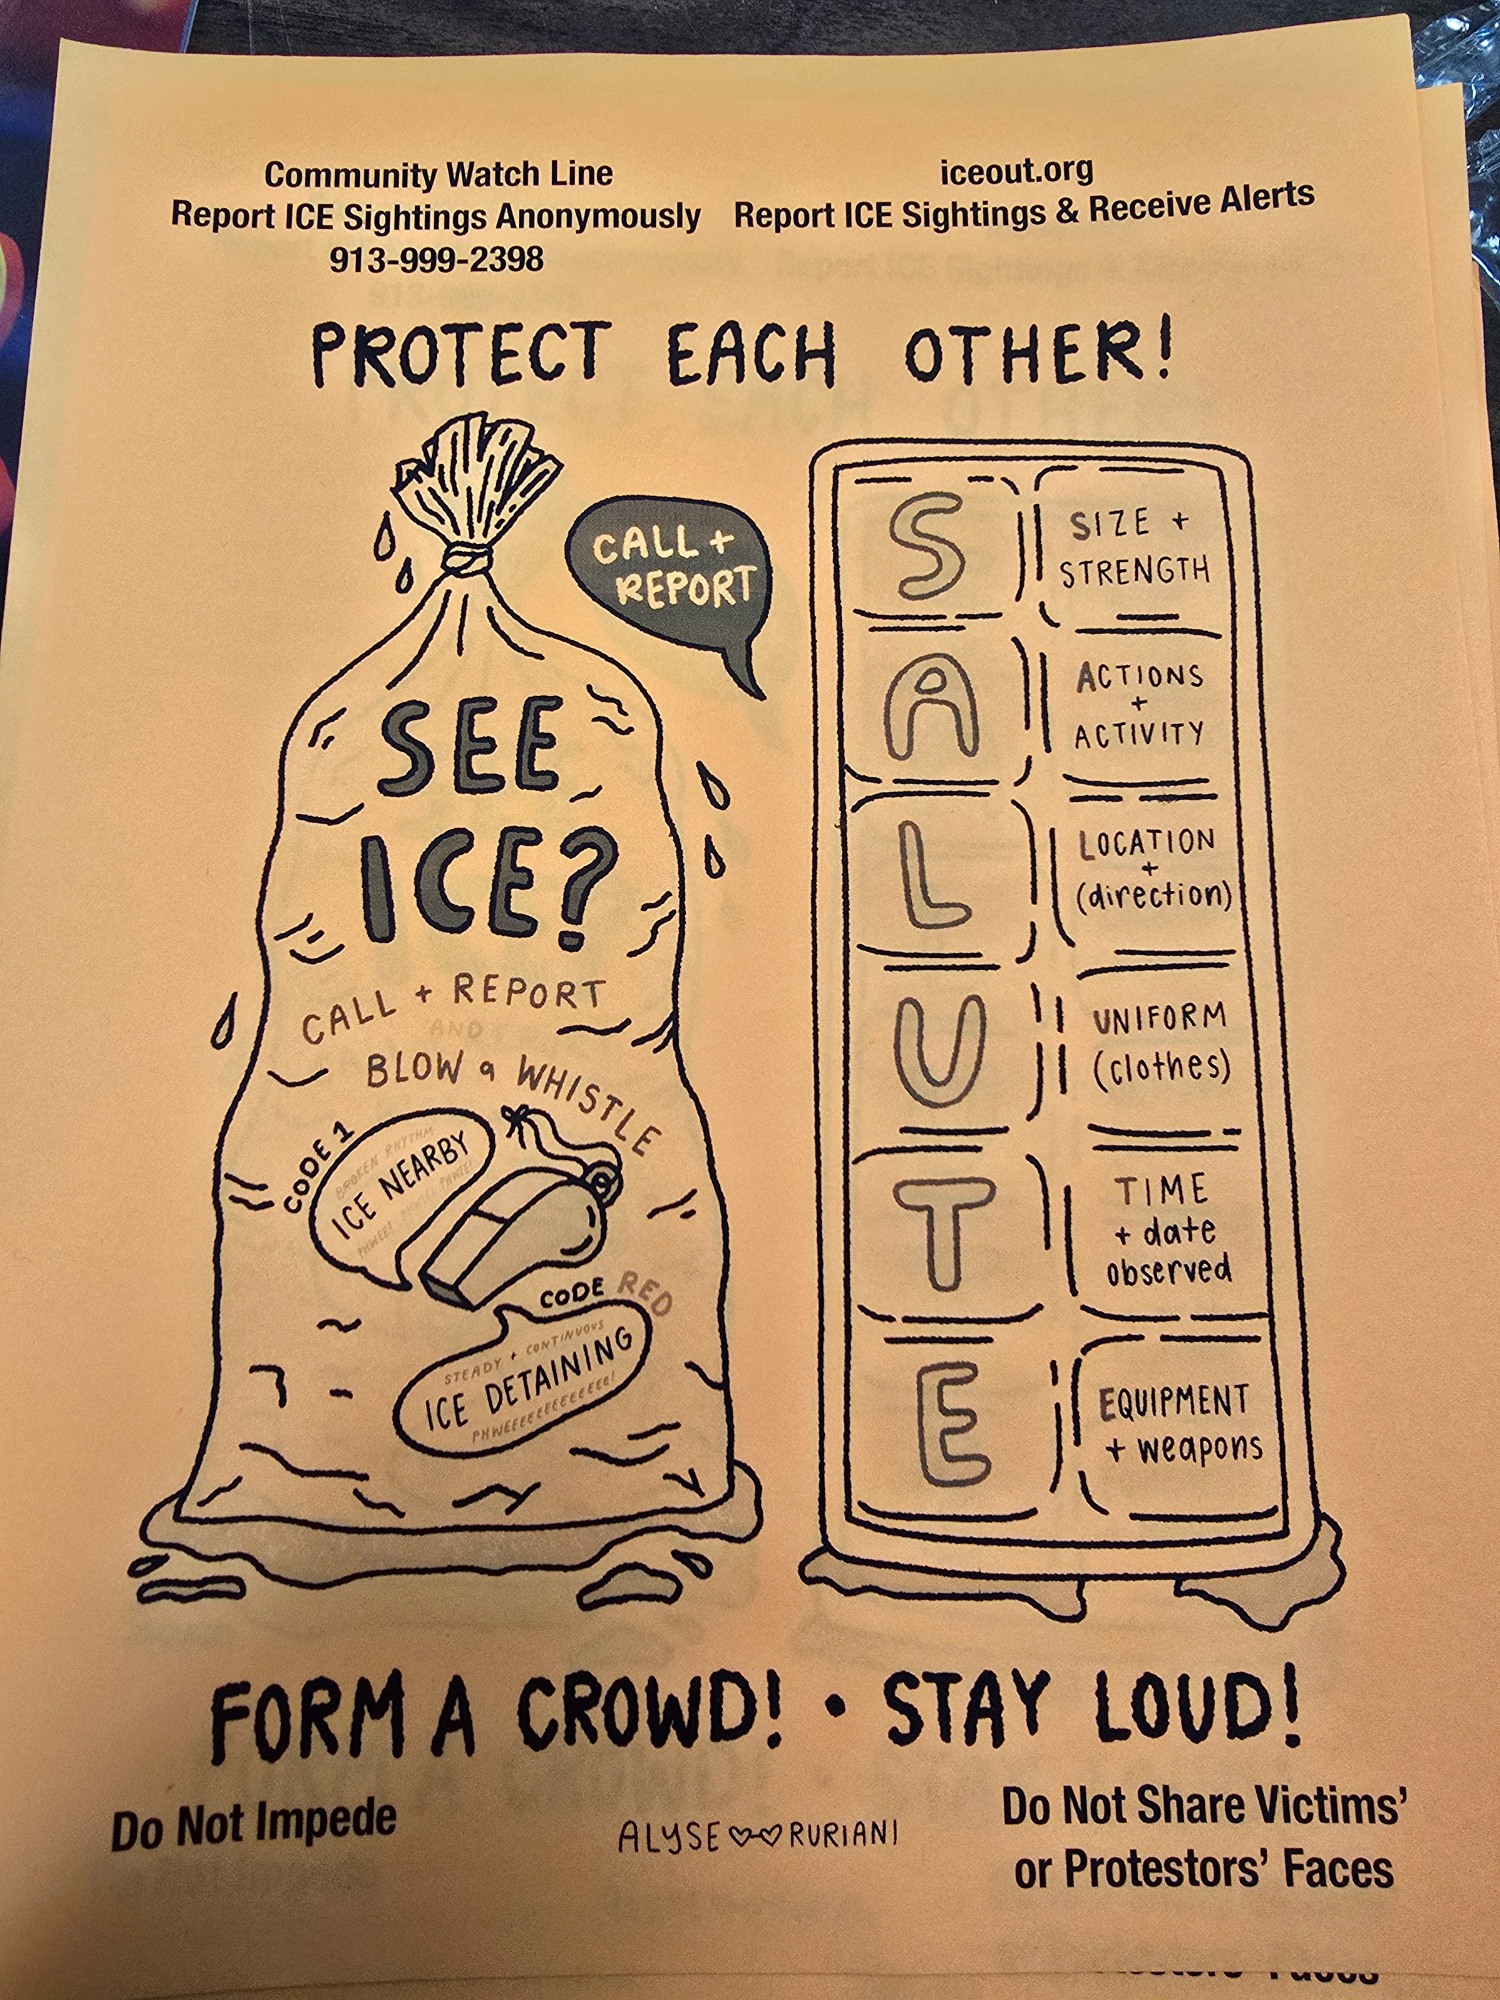 Community Watch Line
Report ICE Sightings Anonymously
913-999-2398
iceout.org
Report ICE Sightings & Receive Alerts
PROTECT EACH OTHER!
CALL +
REPORT
SEE
ICE?
CALL + REPORT
AND
BLOW a WHISTLE
CODE 1
BROKEN RHYTHM
ICE NEARBY
CODE RED
STEADY + CONTINUOUS
ICE DETAINING
S
SIZE +
STRENGTH
A
ACTIONS
+
ACTIVITY
L
LOCATION
+
(direction)
U
UNIFORM
(clothes)
T
TIME
+ date
observed
E
EQUIPMENT
+ weapons
FORM A CROWD! • STAY LOUD!
Do Not Impede
ALYSE RURIANI
Do Not Share Victims'
or Protestors' Faces